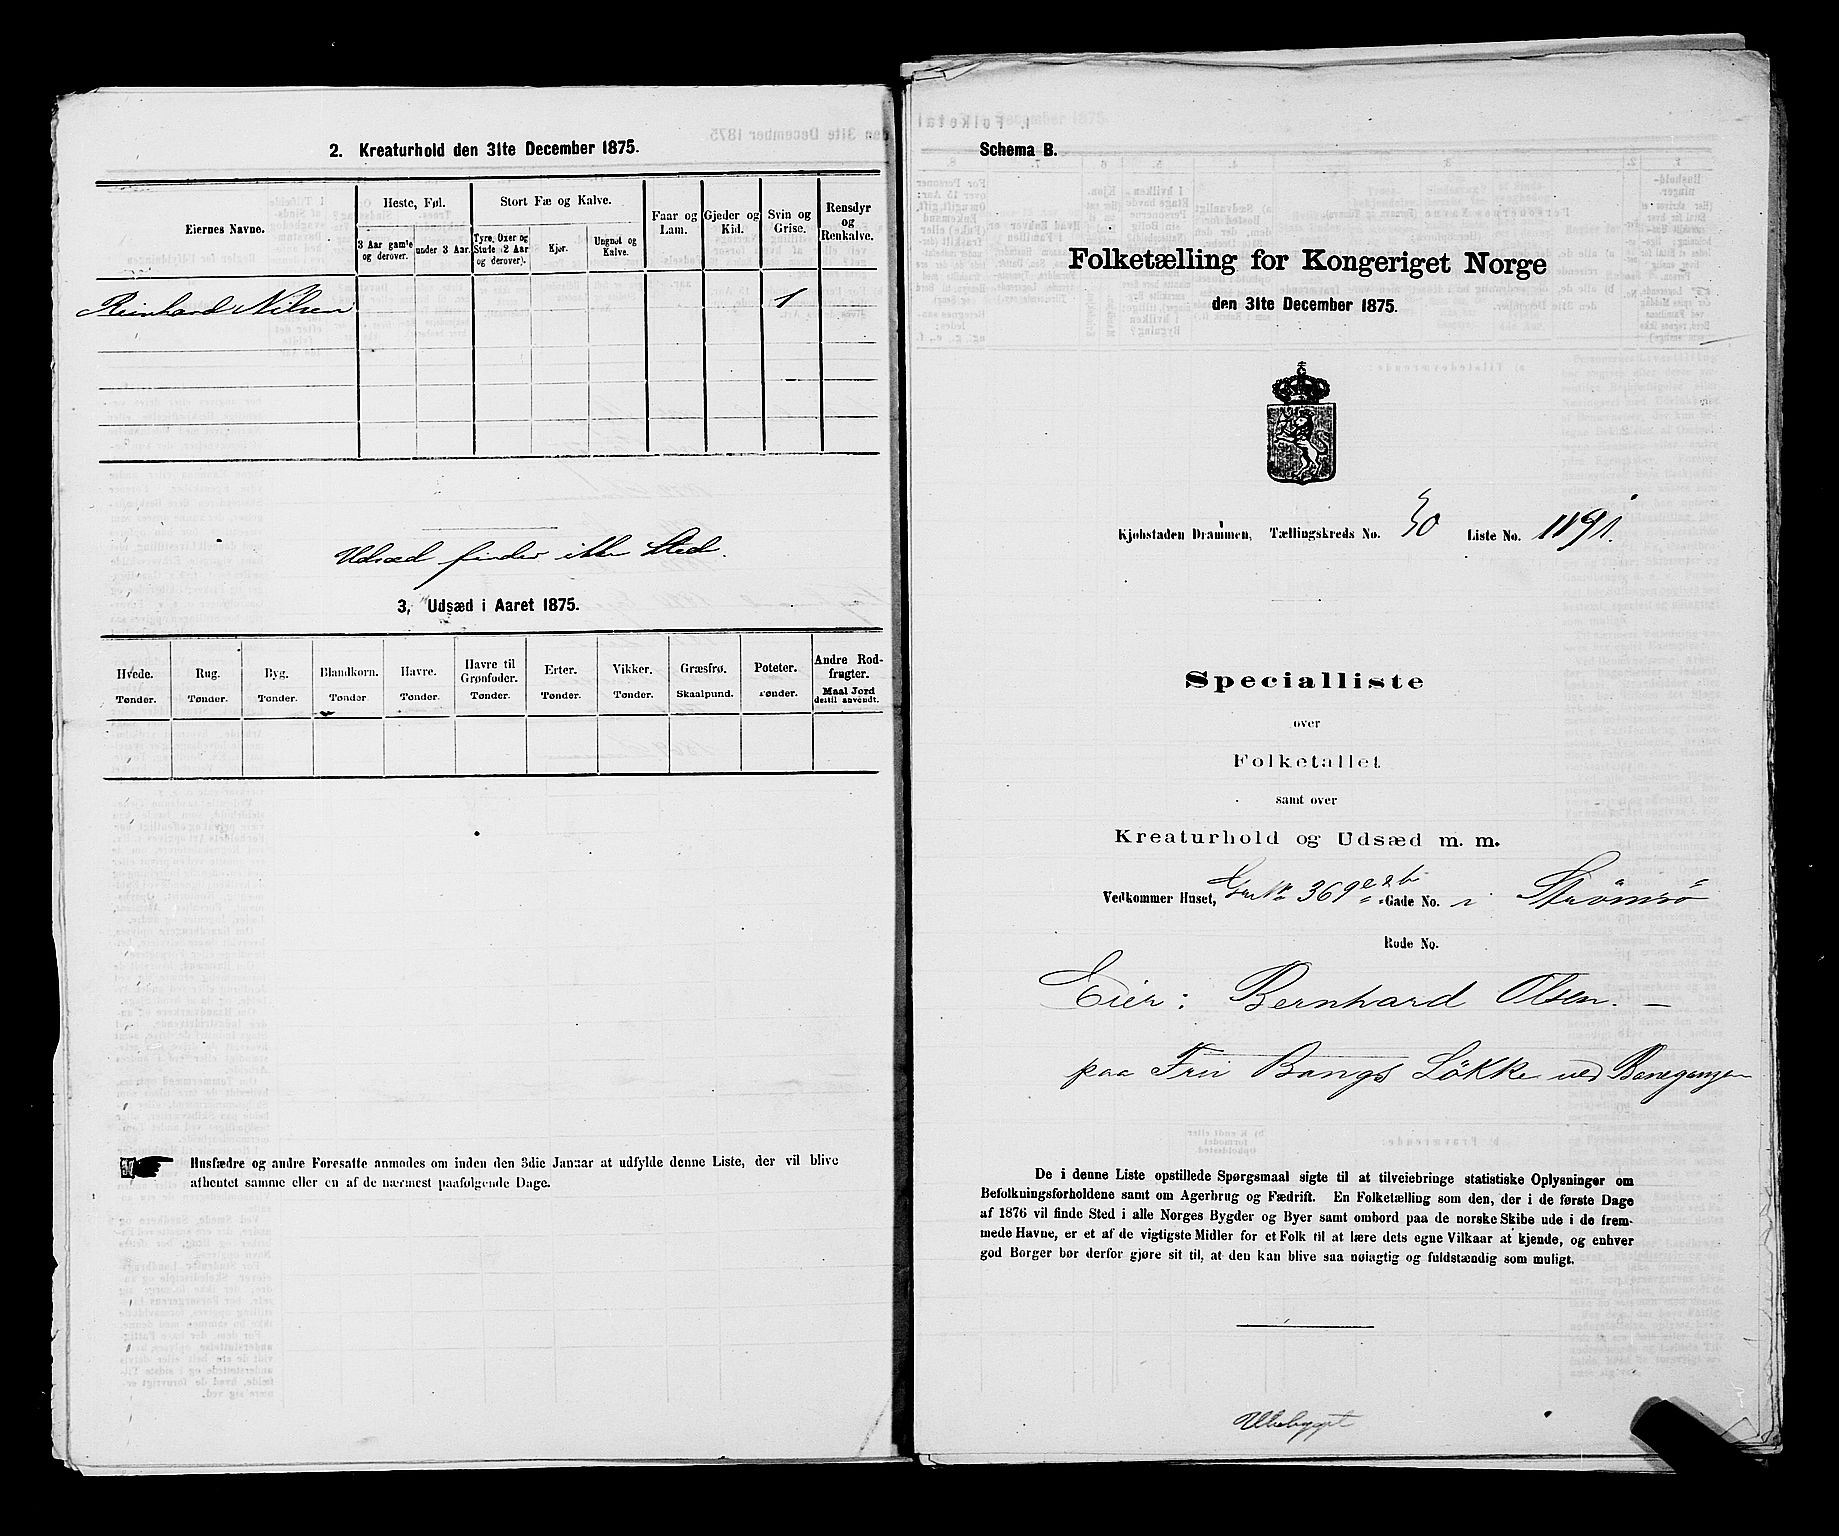 2. Kreaturhold den 31te December 1875.
Eiernes Navne.
Heste, Føl.
Stort Fæ og Kalve.
Faar og Lam.
Gjeder og Kid.
Svin og Grise.
Rensdyr og Renkalve.
3 Aar gamle og derover.
under 3 Aar.
Tyre, Oxer og Stude (2 Aar og derover).
Kjør.
Ungnøt og Kalve.
Reinhard Nilsen 1
Udsæd finder ikke Sted.
3, Udsæd i Aaret 1875.
Hvede. Rug. Byg. Blandkorn. Havre. Havre til Grønfoder. Erter. Vikker. Græsfrø. Poteter. Andre Rodfrugter.
Tønder. Tønder. Tønder. Tønder Tønder. Tønder. Tønder. Tønder. Skaalpund. Tønder. Maal Jord dertil anvendt.
Husfædre og andre Foresatte anmodes om inden den 3die Januar at udfylde denne Liste, der vil blive
afhentet samme eller en af de nærmest paafølgende Dage.
Schema B.
Folketælling for Kongeriget Norge
den 31te December 1875.
Kjøbstaden Drammen, Tællingskreds No. 30 Liste No. 1191.
Specialliste
over
Folketallet
samt over
Kreaturhold og Udsæd m. m.
Vedkommer Huset, 369 Gade No. i Strømsø
Rode No.
Eier: Bernhard Olsen. —
paa Bangs Løkke ved Banegangen
De i denne Liste opstillede Spørgsmaal sigte til at tilveiebringe statistiske Oplysninger om
Befolkningsforholdene samt om Agerbrug og Fædrift. En Folketælling som den, der i de første Dage
af 1876 vil finde Sted i alle Norges Bygder og Byer samt ombord paa de norske Skibe ude i de frem-
mede Havne, er et af de vigtigste Midler for et Folk til at lære dets egne Vilkaar at kjende, og enhver
god Borger bør derfor gjøre sit til, at den kan blive saa nøiagtig og fuldstændig som muligt.
Ubebygget